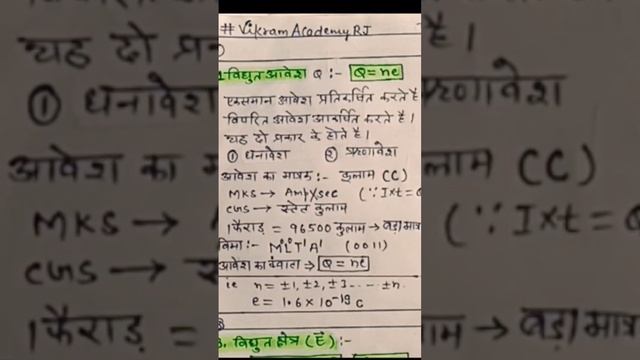 #VikramAcademyRJ
1 विद्युत आवेश Q :- Q=ne
एकसमान आवेश प्रतिकर्षित करते है
विपरित आवेश आकर्षित करते है।
यह दो प्रकार के होते है।
① धनावेश ② ऋणावेश
आवेश का मात्रक :- कुलाम (C)
MKS → Amp×sec
CGS → स्टेत कुलाम
1फैराड़ = 96500 कुलाम → बड़ा मात्र
विमा :- M⁰L⁰T¹A¹ (0011)
आवेश का क्वांटा → Q = ne
ie n = ±1, ±2, ±3 - - - - ±n.
e = 1.6 × 10⁻¹⁹ C
3. विद्युत क्षेत्र (E⃗) :-